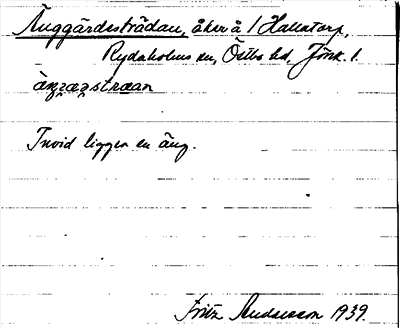 Änggärdesträdan, åker å 1 Hallatorp,
Rydaholms sn, Östbo hd, Jönk. l.
äŋgæṣstraan
Invid ligger en äng.
Fritz Andersson 1939.